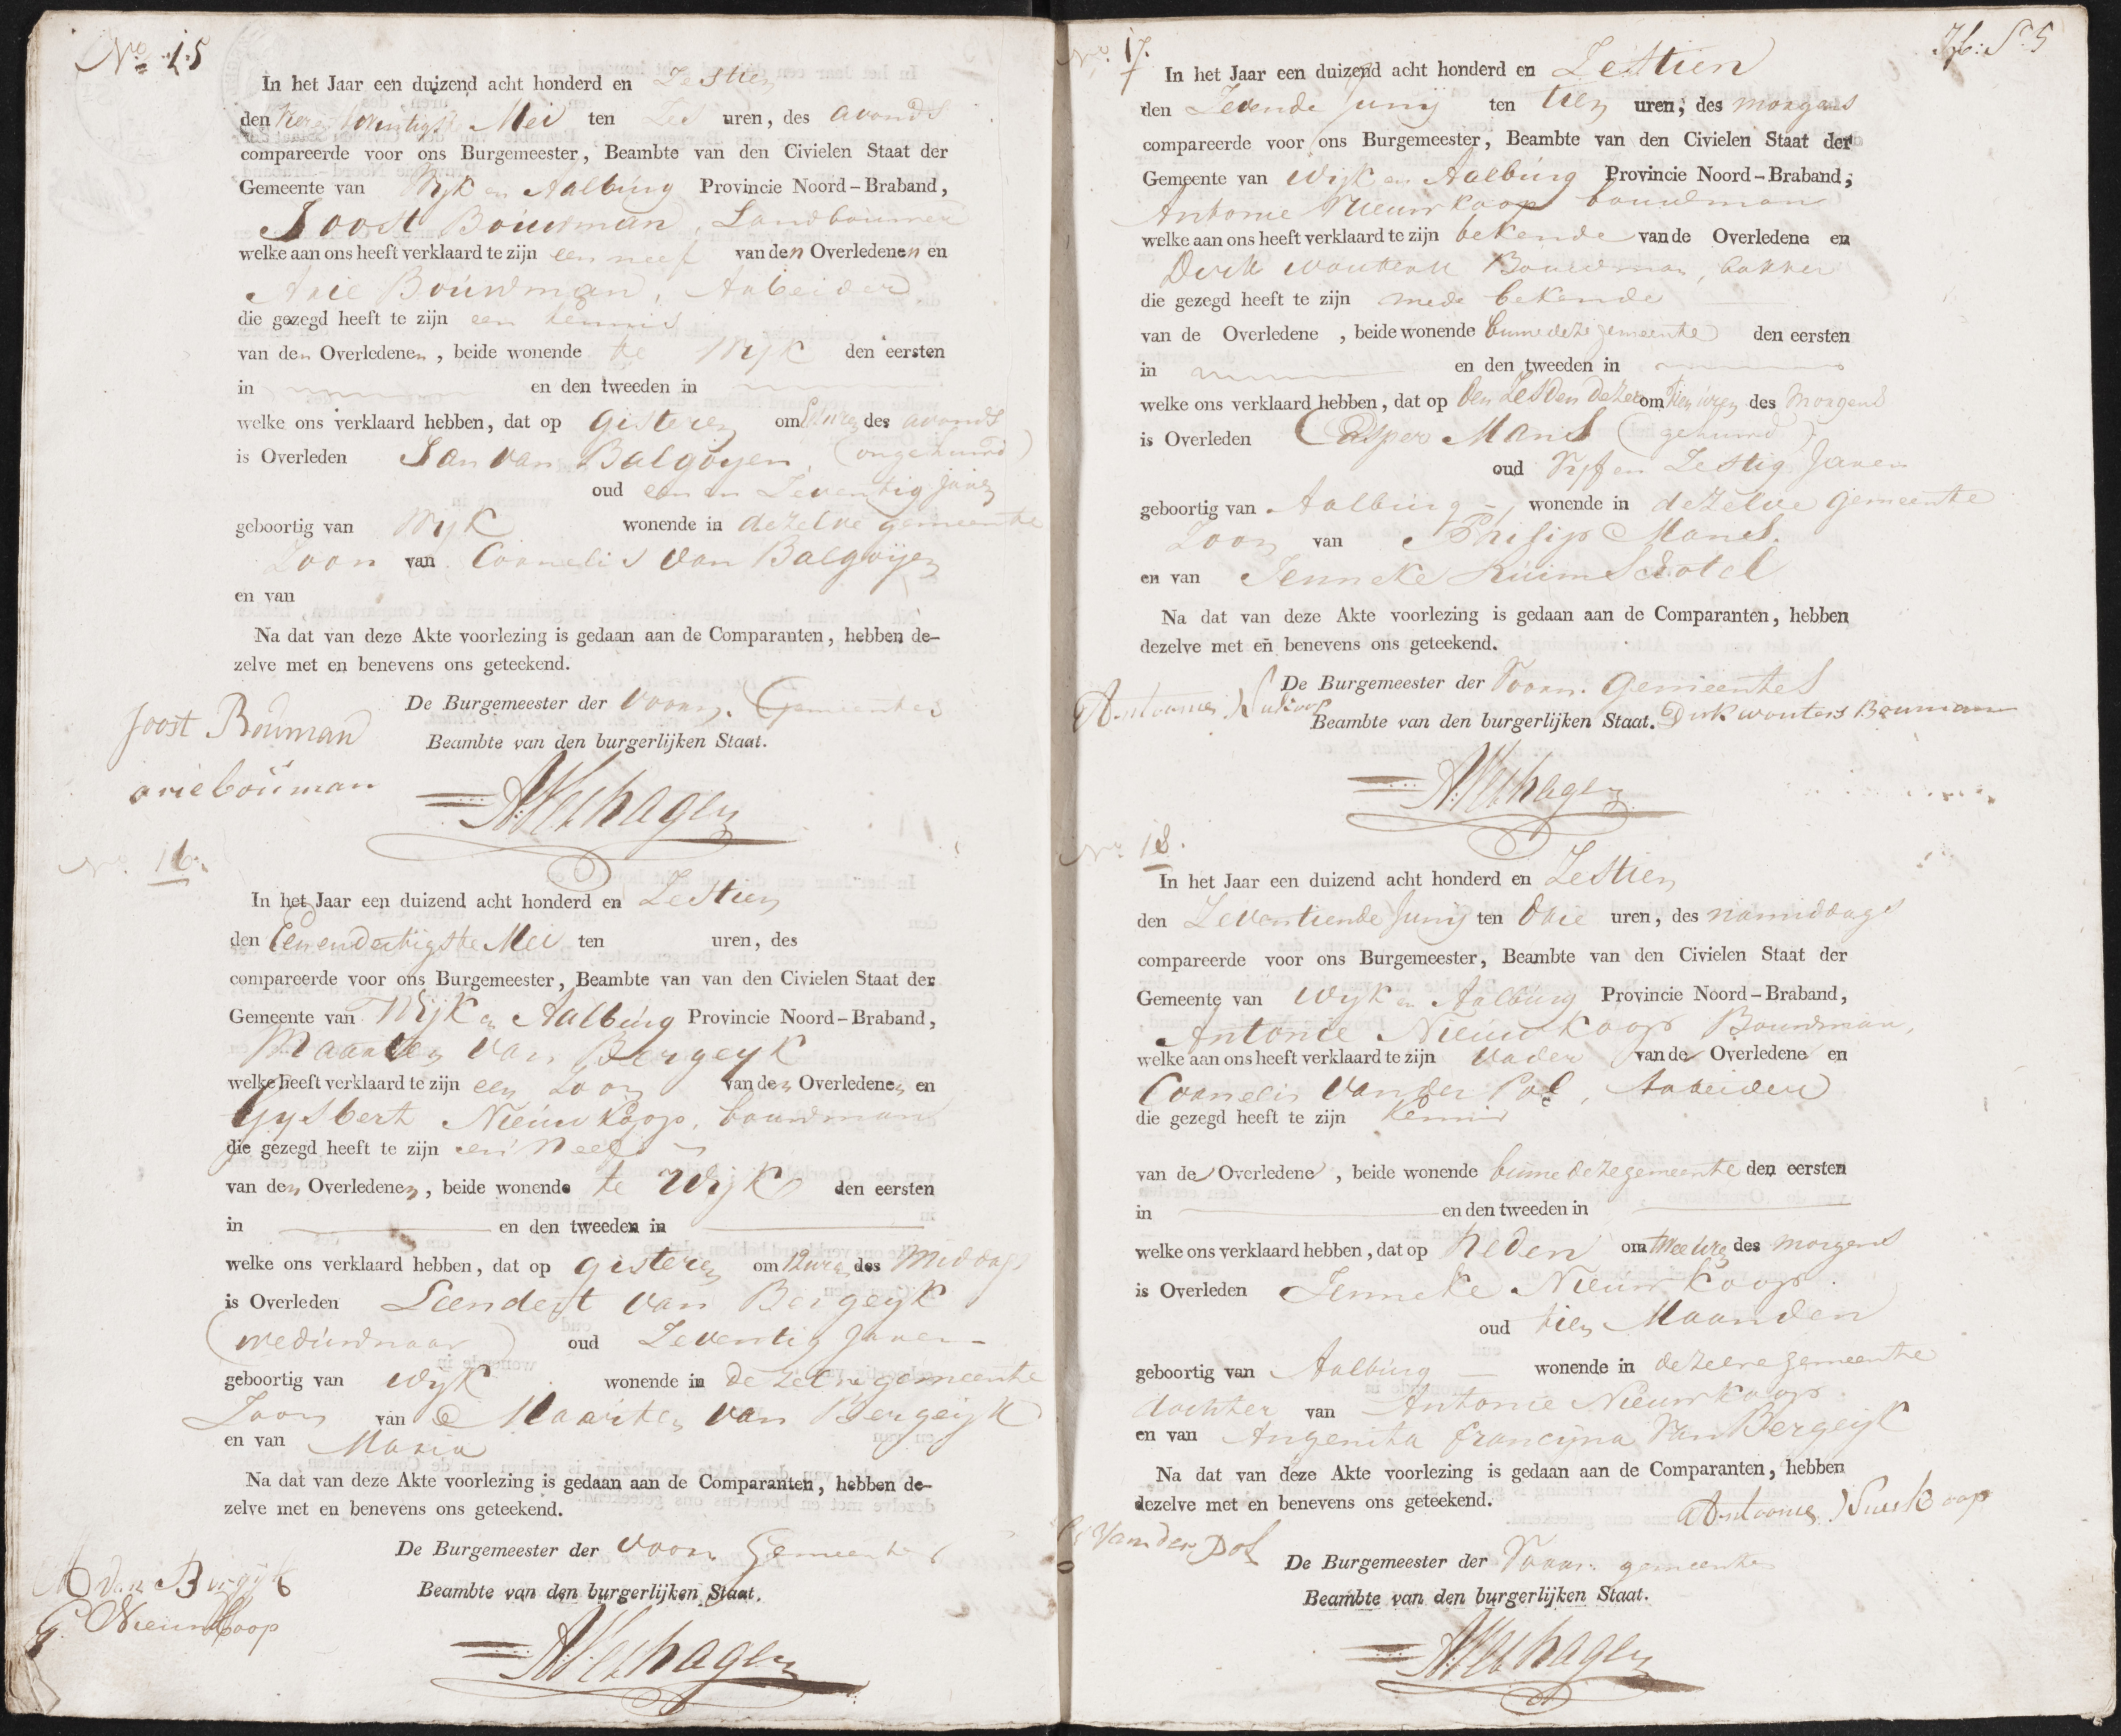 No. 15
In het Jaar een duizend acht honderd en Zestien
den twintigste Mei ten Zes uren, des avonds
compareerde voor ons Burgemeester, Beambte van den Civielen Staat der
Gemeente van Wijk en Aalburg Provincie Noord-Braband,
Joost Bouwman, Landbouwer
welke aan ons heeft verklaard te zijn een neef van den Overledenen en
Arie Bouwman, Arbeider
die gezegd heeft te zijn een kennis
van den Overledenen, beide wonende te Wijk den eersten
in en den tweeden in
welke ons verklaard hebben, dat op gisteren om uren des avonds
is Overleden Jan van Balgoyen, (ongehuwd)
oud een en Zeventig jaren
geboortig van Wijk wonende in dezelve gemeente
Zoon van Cornelis van Balgoyen
en van
Na dat van deze Akte voorlezing is gedaan aan de Comparanten, hebben de-
zelve met en benevens ons geteekend.
De Burgemeester der voorn. Gemeentes
Joost Bouman
Beambte van den burgerlijken Staat.
arie bouman
AVerhagen
No. 16.
In het Jaar een duizend acht honderd en Zestien
den Eenendertigste Mei ten uren, des
compareerde voor ons Burgemeester, Beambte van van den Civielen Staat der
Gemeente van Wijk en Aalburg Provincie Noord-Braband,
Maarten van Bergeyk
welke heeft verklaard te zijn een Zoon van den Overledenen en
Gysbert Nieuwkoop, bouwman
die gezegd heeft te zijn een Neef
van den Overledenen, beide wonende te Wijk den eersten
in en den tweeden in
welke ons verklaard hebben, dat op gisteren om 12 uren des Middags
is Overleden Leendert van Bergeyk
(weduwnaar) oud Zeventig Jaren
geboortig van Wyk wonende in dezelve gemeente
Zoon van Maarten van Bergeijk
en van Maria
Na dat van deze Akte voorlezing is gedaan aan de Comparanten, hebben de-
zelve met en benevens ons geteekend.
De Burgemeester der voorn Gemeentes
M van Bergijk
Beambte van den burgerlijken Staat.
G. Nieuwkoop
AVerhagen
No. 17.
In het Jaar een duizend acht honderd en Zestien
den Zevende Junij ten tien uren, des morgens
compareerde voor ons Burgemeester, Beambte van den Civielen Staat der
Gemeente van Wijk en Aalburg Provincie Noord-Braband,
Antonie Nieuwkoop bouwman
welke aan ons heeft verklaard te zijn bekende van de Overledene en
Dirk wouterse Bouwman, bakker
die gezegd heeft te zijn mede bekende
van de Overledene, beide wonende binne deze gemeente den eersten
in en den tweeden in
welke ons verklaard hebben, dat op den Zesden dezer om tien uren des Morgens
is Overleden Casper Mans (gehuwd)
oud Vijf en Zestig Jaren
geboortig van Aalburg, wonende in dezelve Gemeente
Zoon van Philip Mans.
en van Jenneke Ruimschotel
Na dat van deze Akte voorlezing is gedaan aan de Comparanten, hebben
dezelve met en benevens ons geteekend.
De Burgemeester der Voorn. Gemeentes
Beambte van den burgerlijken Staat. Dirk wouters Bouman
AVerhagen
No. 18.
In het Jaar een duizend acht honderd en Zestien
den Zeventiende Junij ten drie uren, des namiddags
compareerde voor ons Burgemeester, Beambte van den Civielen Staat der
Gemeente van Wyk en Aalburg Provincie Noord-Braband,
Antonie Nieuwkoop Bouwman,
welke aan ons heeft verklaard te zijn vader van de Overledene en
Cornelis van der Pol, Arbeider
die gezegd heeft te zijn kennis
van de Overledene, beide wonende binne deze gemeente den eersten
in en den tweeden in
welke ons verklaard hebben, dat op heden om twee uren des morgens
is Overleden Jenneke Nieuwkoop.
oud tien Maanden
geboortig van Aalburg wonende in dezelve gemeente
dochter van Antonie Nieuwkoop.
en van Angenita francijna Van Bergeijk
Na dat van deze Akte voorlezing is gedaan aan de Comparanten, hebben
dezelve met en benevens ons geteekend.
Van der Pol
De Burgemeester der Voorn. gemeente
Beambte van den burgerlijken Staat.
AVerhagen